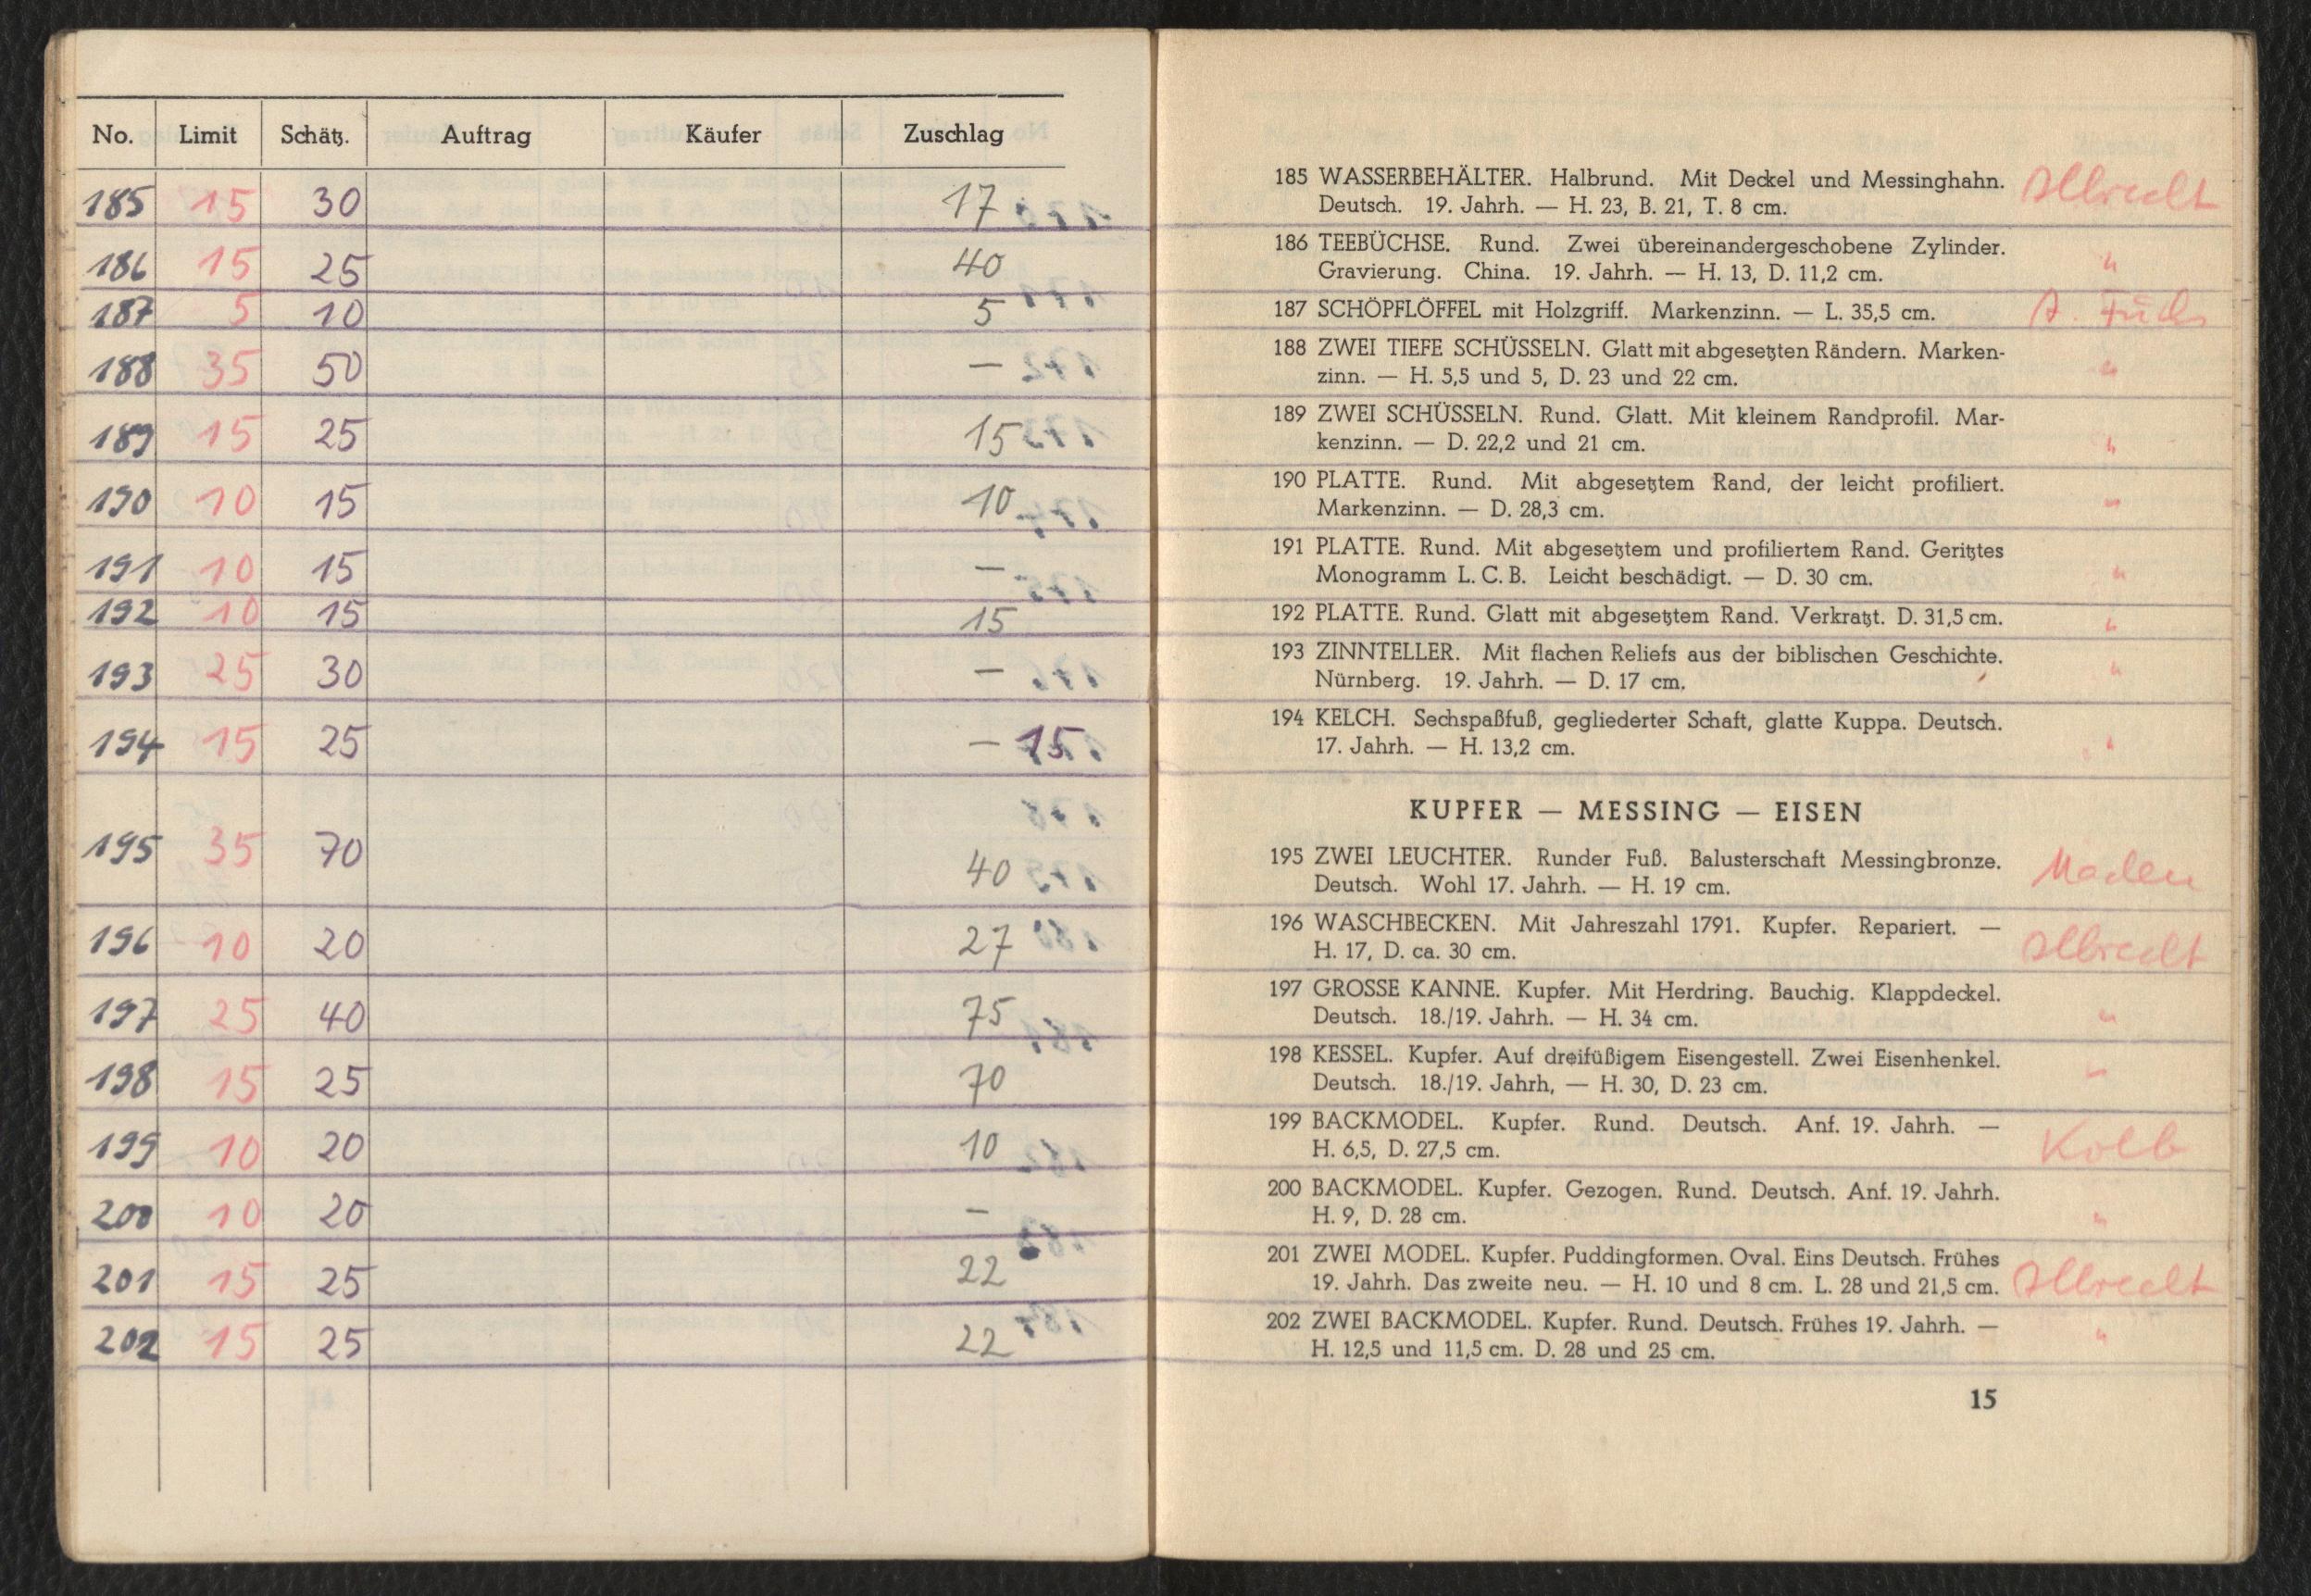 No. Limit Schätz. Auftrag Käufer Zuschlag
185 15 30 17
186 15 25 40
187 5 10 5
188 35 50 —
189 15 25 15
190 10 15 10
191 10 15 —
192 10 15 15
193 25 30 —
194 15 25 — 15
195 35 70 40
196 10 20 27
197 25 40 75
198 15 25 70
199 10 20 10
200 10 20 —
201 15 25 22
202 15 25 22
185 WASSERBEHÄLTER. Halbrund. Mit Deckel und Messinghahn. Albrecht
Deutsch. 19. Jahrh. — H. 23, B. 21, T. 8 cm.
186 TEEBÜCHSE. Rund. Zwei übereinandergeschobene Zylinder.
Gravierung. China. 19. Jahrh. — H. 13, D. 11,2 cm. "
187 SCHÖPFLÖFFEL mit Holzgriff. Markenzinn. — L. 35,5 cm. A. Fuchs
188 ZWEI TIEFE SCHÜSSELN. Glatt mit abgesetzten Rändern. Marken-
zinn. — H. 5,5 und 5, D. 23 und 22 cm. "
189 ZWEI SCHÜSSELN. Rund. Glatt. Mit kleinem Randprofil. Mar-
kenzinn. — D. 22,2 und 21 cm. "
190 PLATTE. Rund. Mit abgesetztem Rand, der leicht profiliert.
Markenzinn. — D. 28,3 cm. "
191 PLATTE. Rund. Mit abgesetztem und profiliertem Rand. Geritztes
Monogramm L. C. B. Leicht beschädigt. — D. 30 cm. "
192 PLATTE. Rund. Glatt mit abgesetztem Rand. Verkratzt. D. 31,5 cm. "
193 ZINNTELLER. Mit flachen Reliefs aus der biblischen Geschichte.
Nürnberg. 19. Jahrh. — D. 17 cm. "
194 KELCH. Sechspaßfuß, gegliederter Schaft, glatte Kuppa. Deutsch.
17. Jahrh. — H. 13,2 cm. "
KUPFER — MESSING — EISEN
195 ZWEI LEUCHTER. Runder Fuß. Balusterschaft Messingbronze.
Deutsch. Wohl 17. Jahrh. — H. 19 cm.
196 WASCHBECKEN. Mit Jahreszahl 1791. Kupfer. Repariert. —
H. 17, D. ca. 30 cm. Albrecht
197 GROSSE KANNE. Kupfer. Mit Herdring. Bauchig. Klappdeckel.
Deutsch. 18./19. Jahrh. — H. 34 cm. "
198 KESSEL. Kupfer. Auf dreifüßigem Eisengestell. Zwei Eisenhenkel.
Deutsch. 18./19. Jahrh, — H. 30, D. 23 cm. "
199 BACKMODEL. Kupfer. Rund. Deutsch. Anf. 19. Jahrh. —
H. 6,5, D. 27,5 cm. Kolb
200 BACKMODEL. Kupfer. Gezogen. Rund. Deutsch. Anf. 19. Jahrh.
H. 9, D. 28 cm. "
201 ZWEI MODEL. Kupfer. Puddingformen. Oval. Eins Deutsch. Frühes
19. Jahrh. Das zweite neu. — H. 10 und 8 cm. L. 28 und 21,5 cm. Albrecht
202 ZWEI BACKMODEL. Kupfer. Rund. Deutsch. Frühes 19. Jahrh. —
H. 12,5 und 11,5 cm. D. 28 und 25 cm. "
15